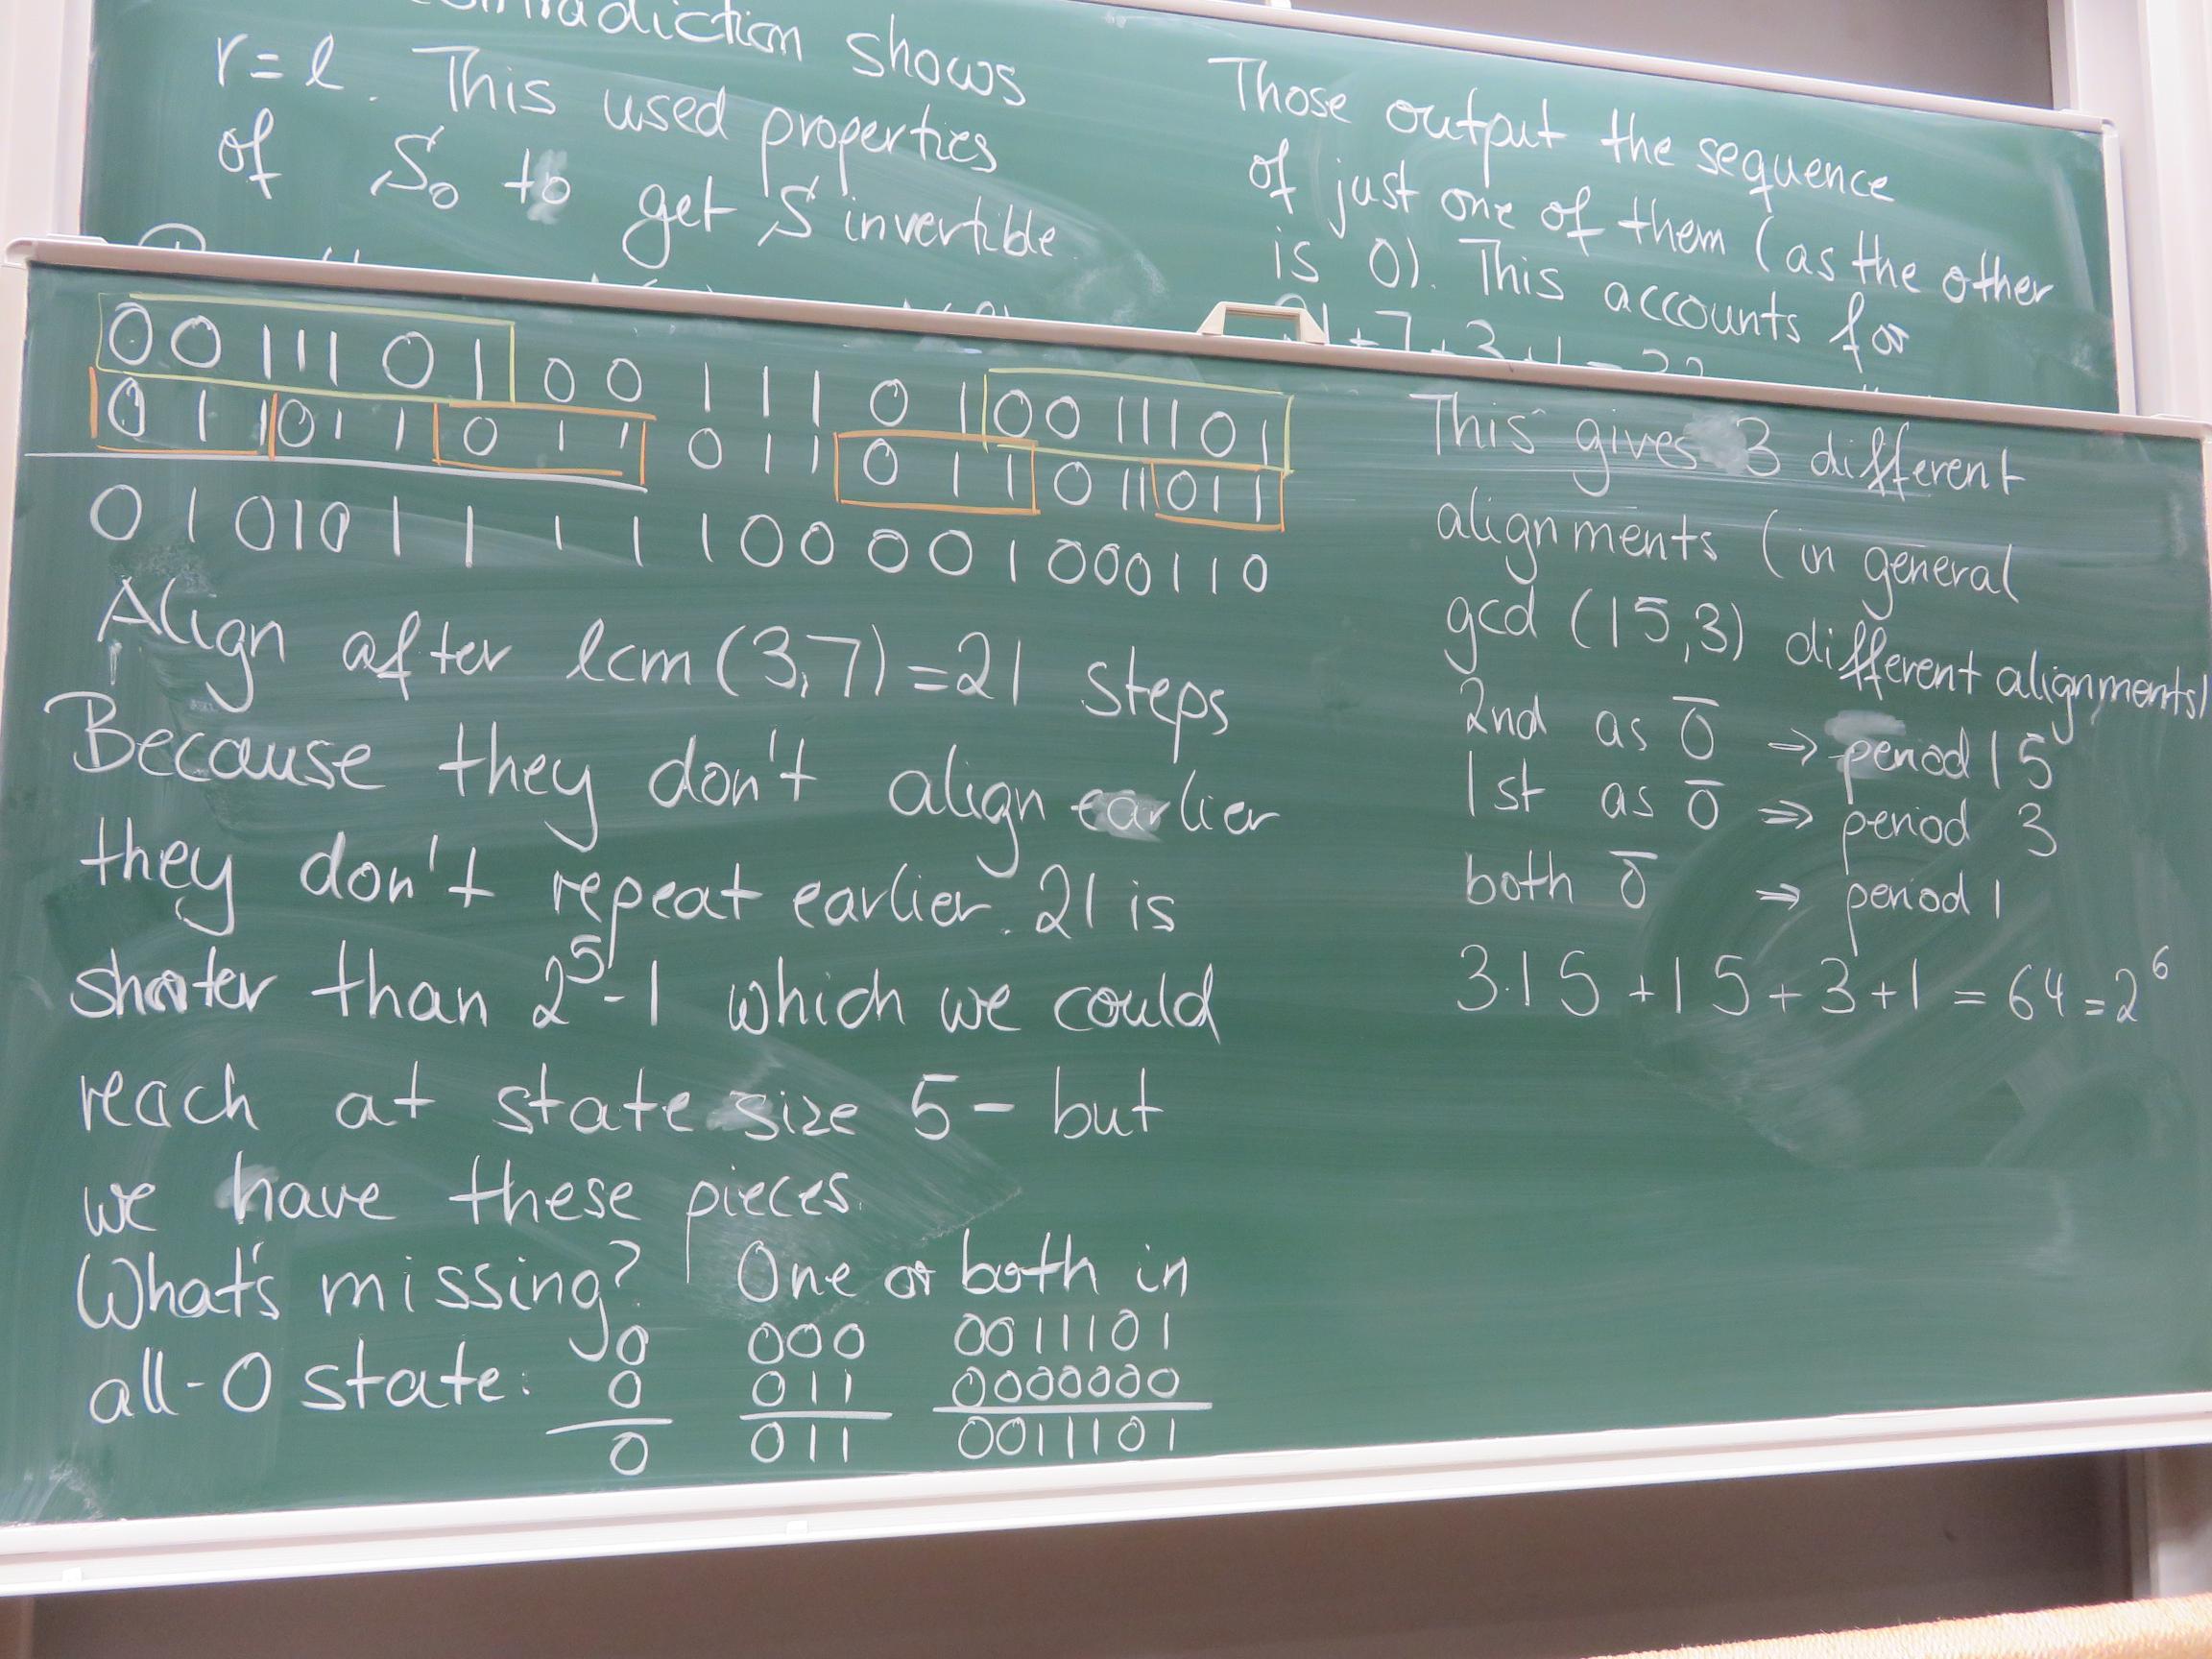 contradiction shows
r = l. This used properties
of S₀ to get S invertible
Those output the sequence
of just one of them (as the other
is 0). This accounts for
0 0 1 1 1 0 1 0 0 1 1 1 0 1 0 0 1 1 1 0 1
0 1 1 0 1 1 0 1 1 0 1 1 0 1 1 0 1 1 0 1 1
0 1 0 1 0 1 1 1 1 1 0 0 0 0 1 0 0 0 1 1 0
Align after lcm(3,7)=21 steps
Because they don't align earlier
they don't repeat earlier. 21 is
shorter than 2⁵-1 which we could
reach at state size 5 - but
we have these pieces.
What's missing? One or both in
all-0 state:
0 000 0011101
0 011 0000000
0 011 0011101
This gives 3 different
alignments (in general
gcd (15,3) different alignments)
2nd as 0̄ ⇒ period 15
1st as 0̄ ⇒ period 3
both 0̄ ⇒ period 1
3·15 + 15 + 3 + 1 = 64 = 2⁶